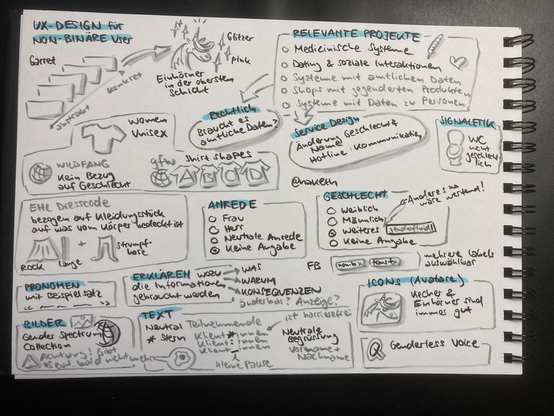 UX-DESIGN für
NON-BINÄRE User
Garret
abstrakt
konkret
Glitzer
Pink
Einhörner
in der obersten
Schicht
RELEVANTE PROJEKTE
Medizinische Systeme
Dating & soziale Interaktionen
Systeme mit amtlichen Daten
Shops mit gegenderten Produkten
Systeme mit Daten zu Personen
Rechtlich
Braucht es
amtliche Daten?
Service Design
Änderung Geschlecht &
Name
Hotline: Kommunikation
SIGNALETIK
WC
nicht
geschlecht-
lich
Women
Unisex
WILDFANG
Kein Bezug
auf Geschlecht
gfw
Shirt shapes
A B C D
EHL Dresscode
bezogen auf Kleidungsstück
auf was vom Körper bedeckt ist
Rock
Länge
+
Strumpf-
hose
ANREDE
Frau
Herr
Neutrale Anrede
Keine Angabe
GESCHLECHT
Weiblich
Männlich
Weiteres
genderfluid
Keine Angabe
FB
mehrere Labels
auswählbar
PRONOMEN
mit Beispielsatz
ERKLÄREN wozu
die Informationen
gebraucht werden
WAS
WARUM
KONSEQUENZEN
änderbar? Anzeige?
ICONS (Avatare)
Becher &
Einhörner sind
immer gut
BILDER
Gender Spectrum
Collection
TEXT
Neutral Teilnehmende
* Stern
Klient*innen
Klient:innen
Klient_innen
kleine Pause
ist barrierefrei
Neutrale
Begrüssung
Vorname +
Nachname
Genderless Voice